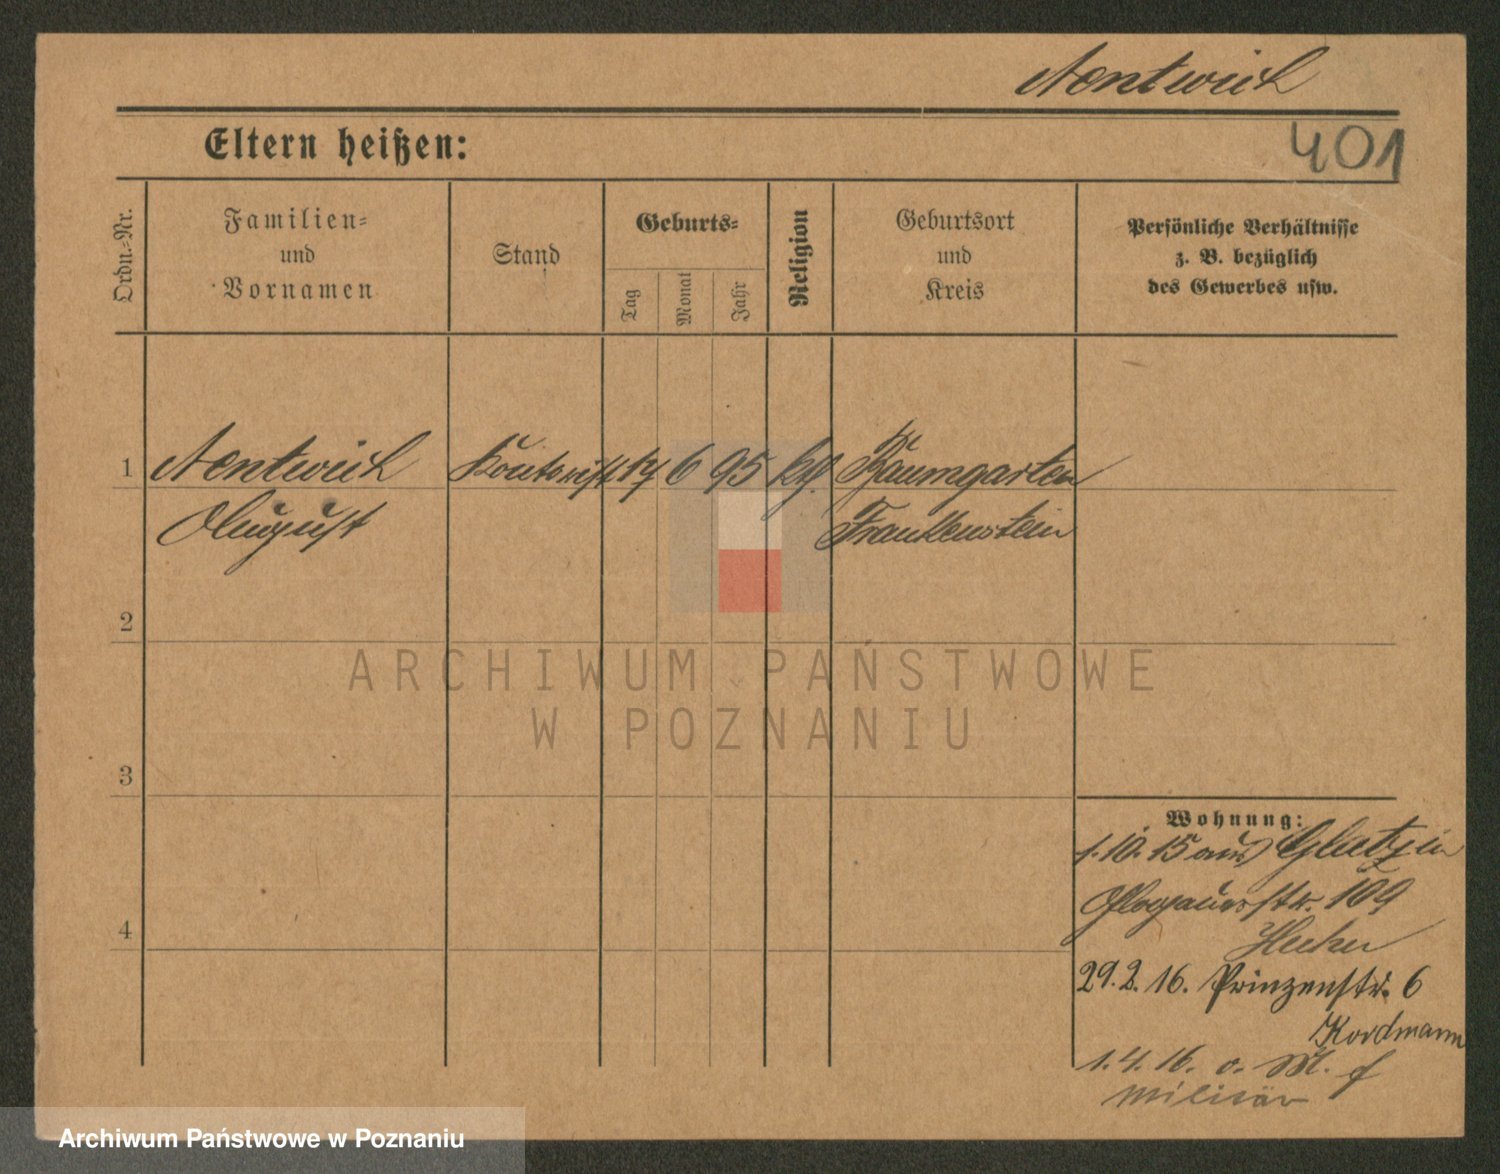 Nentwich
Eltern heißen:
401
Ordn.-Nr.
Familien-
und
Vornamen
Stand
Geburts-
Tag
Monat
Jahr
Religion
Geburtsort
und
Kreis
Persönliche Verhältnisse
z. B. bezüglich
des Gewerbes usw.
1
Nentwich
August
17 6 95
Baumgarten
Frankenstein
2
3
4
ARCHIWUM PAŃSTWOWE
W POZNANIU
Wohnung:
1.10.15 aus Glatz in
Glogauerstr. 109
29.2.16. Prinzenstr. 6
Kordmann
1.4.16. o.
Militär
Archiwum Państwowe w Poznaniu